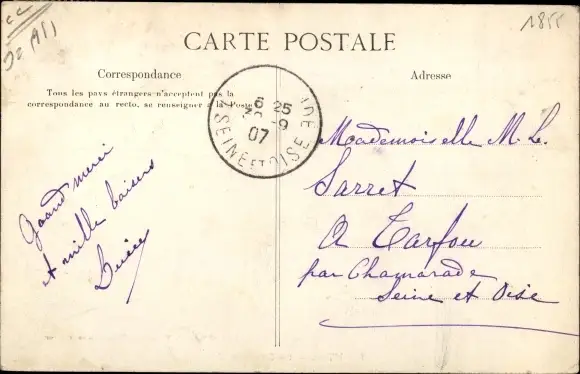 CARTE POSTALE
Correspondance
Tous les pays étrangers n'acceptent pas la
correspondance au recto, se renseigner à la Poste
Grand merci
et mille baisers
Adresse
Mademoiselle M. L.
Sarret
A Tarfou
par Chamarade
Seine et Oise
6 25
30 -9
07
SEINE ET OISE
1855